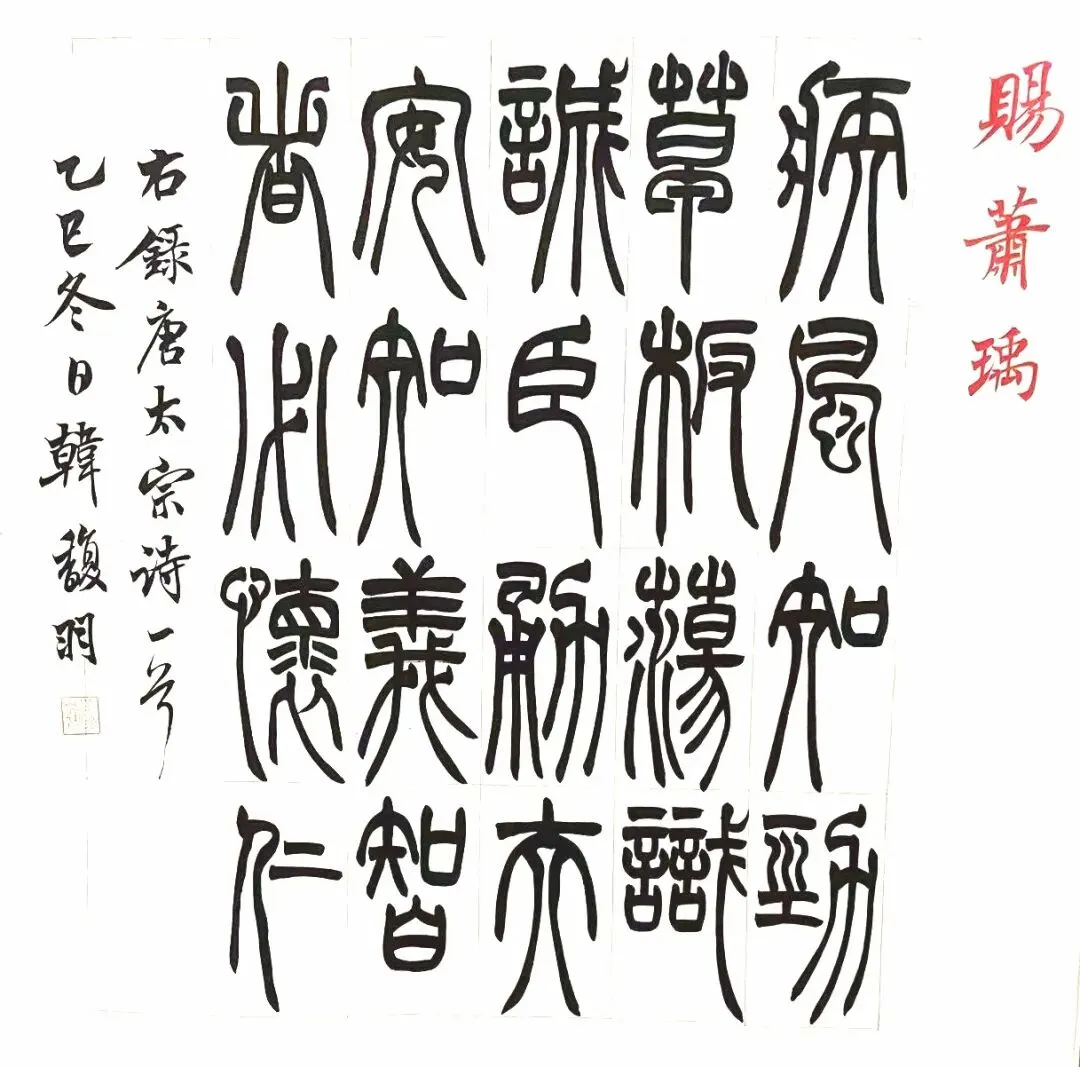 賜蕭瑀
疾風知勁
草板蕩識
誠臣勇夫
安知義智
者必懷仁
右錄唐太宗诗一首
乙巳冬日韓馥明